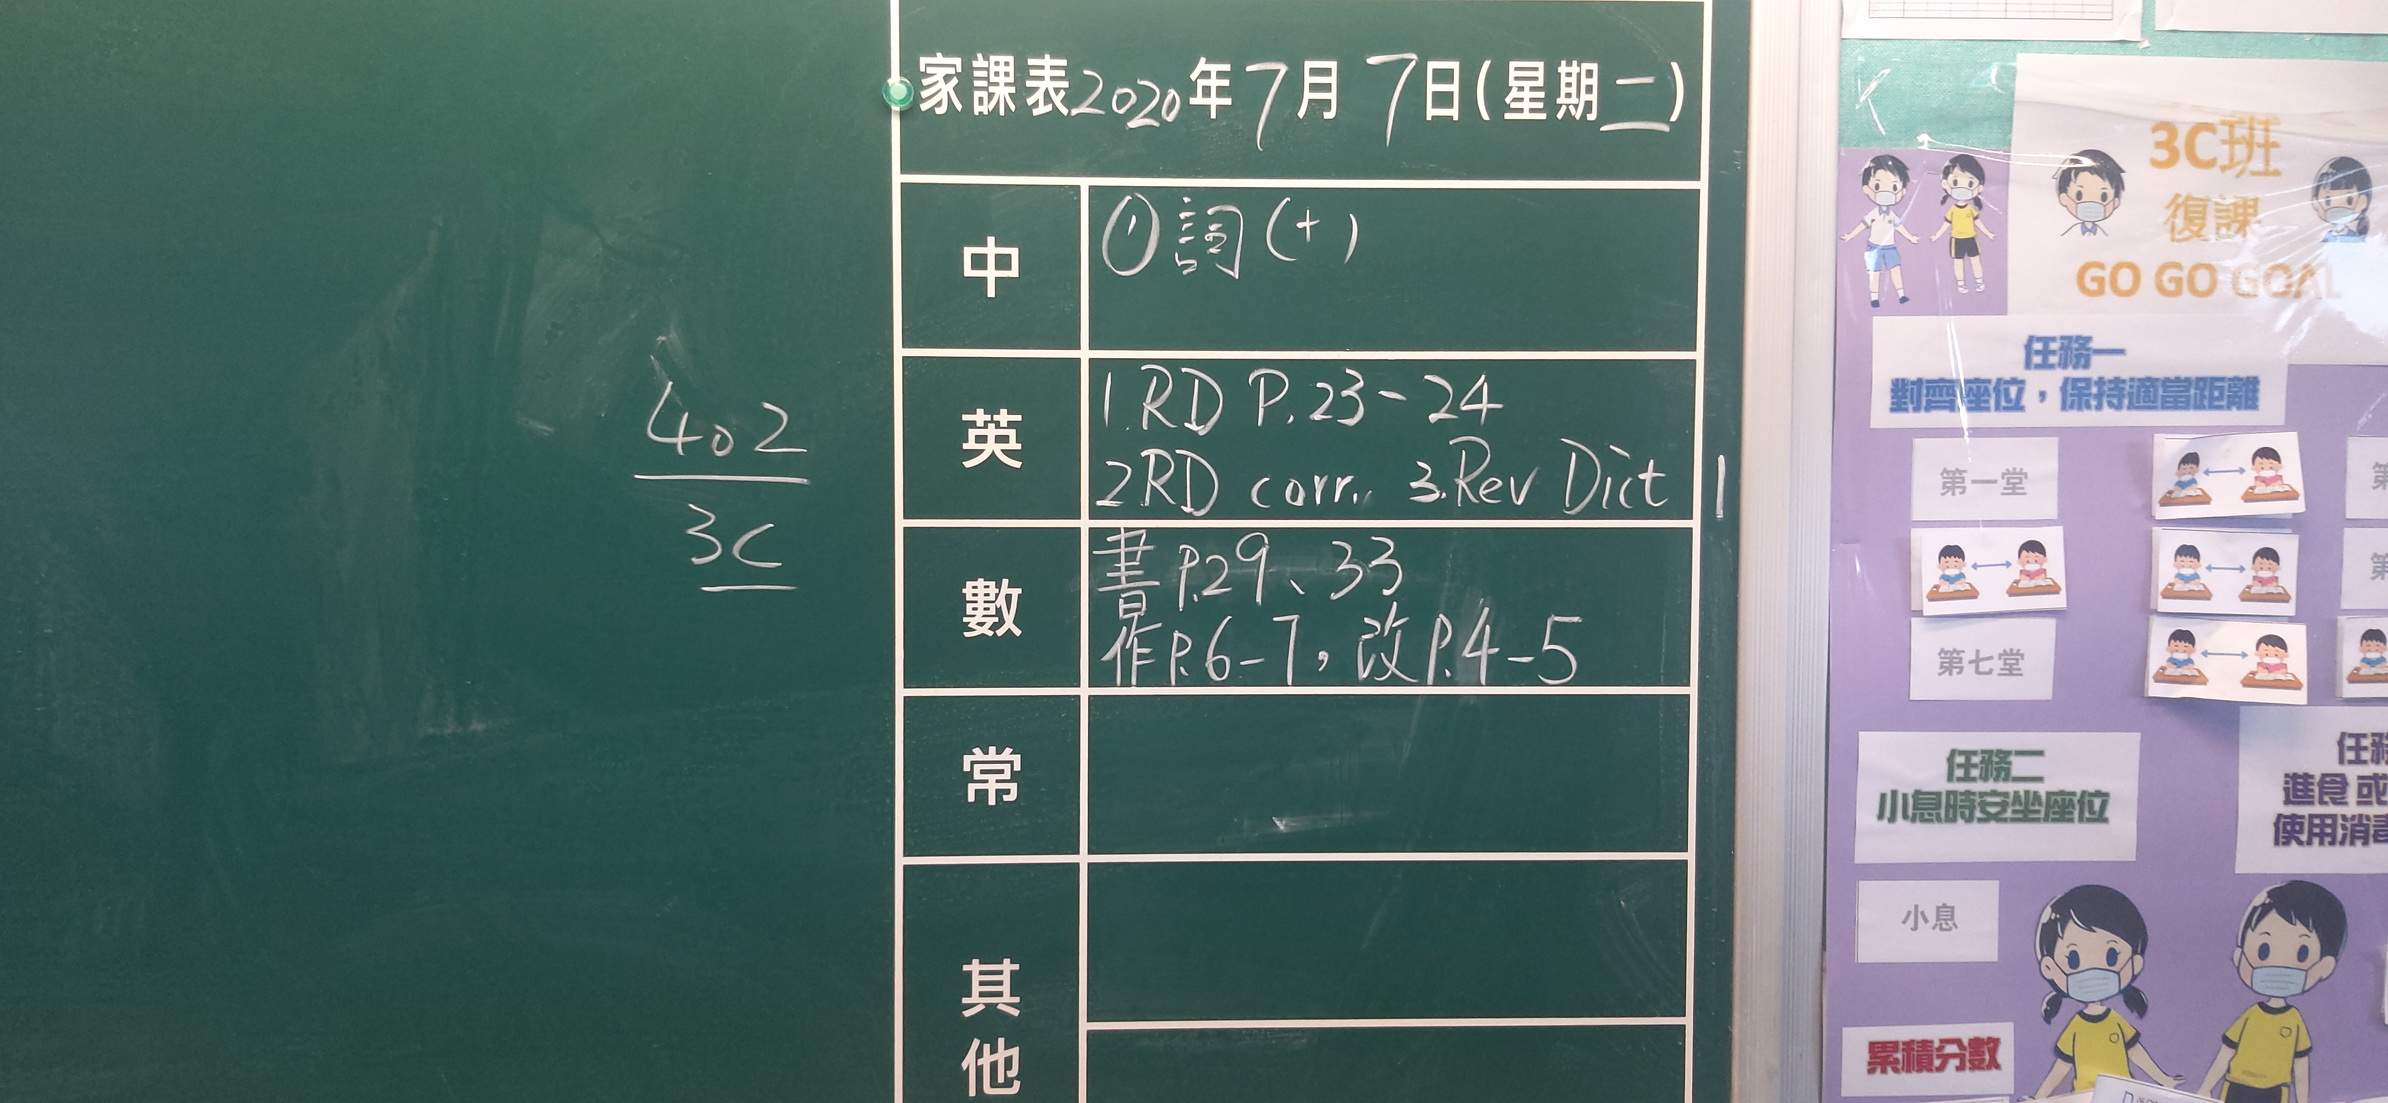 家課表2020年7月7日(星期二)
中
①詞(十)
英
1.RD P.23-24
2.RD corr. 3.Rev Dict 1
數
書P.29、33
作P.6-7，改P.4-5
常
其他
402
3C
3C班
復課
GO GO GOAL
任務一
對齊座位，保持適當距離
第一堂
第七堂
任務二
小息時安坐座位
進食 或
使用消毒
小息
累積分數